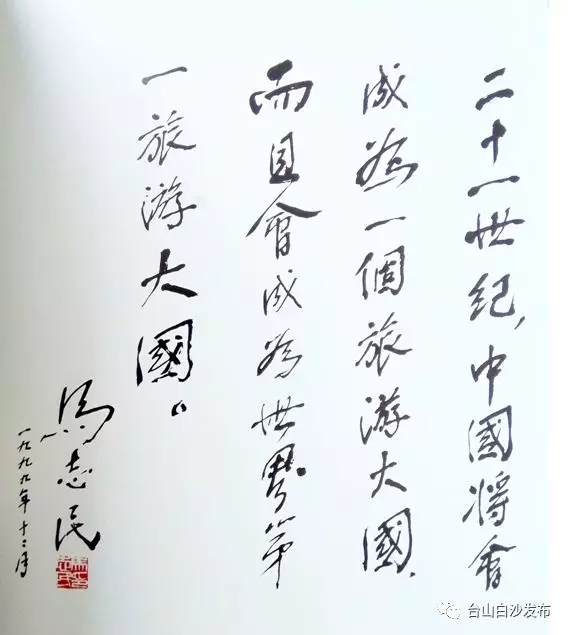 二十一世纪,中國将會
成為一個旅游大國,
而且會成為世界第
一旅游大國。
馬志民
一九九九年十二月
台山白沙发布